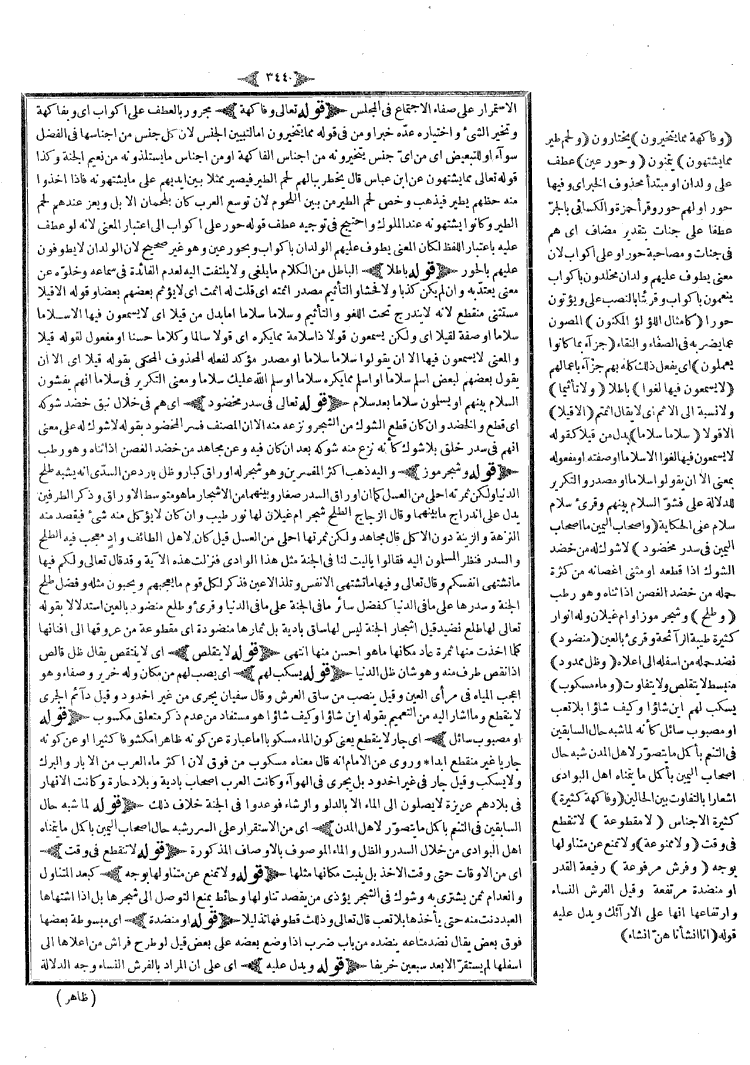 ﴿٣٤٤٠﴾
الاستمرار على صفاء الاجتماع فى المجلس ﴿قوله تعالى وفاكهة﴾ مجرور بالعطف على اكواب اى وبفاكهة
وتخير الشئ واختياره عدّه خيرا ومن فى قوله مما يتخيرون اما لتبيين الجنس لان كل جنس من اجناسها فى الفضل
سوآء او للتبعيض اى من اىّ جنس يتخيرونه من اجناس الفاكهة او من اجناس ما يستلذونه من نعيم الجنة وكذا
قوله تعالى مما يشتهون عن ابن عباس قال يخطر ببالهم لحم الطير فيصير ممثلا بين ايديهم على ما يشتهونه فاذا اخذوا
منه حظهم يطير فيذهب وخص لحم الطير من بين اللحوم لان توسع العرب كان بلحمان الابل ويعز عندهم لحم
الطير وكانوا يشتهونه عند الملوك واحتيج فى توجيه عطف قوله حور على اكواب الى اعتبار المعنى لانه لو عطف
عليه باعتبار اللفظ لكان المعنى يطوف عليهم الولدان باكواب وبحور عين وهو غير صحيح لان الولدان لا يطوفون
عليهم بالحور ﴿قوله باطلا﴾ الباطل من الكلام ما يلغى ولا يلتفت اليه لعدم الفائدة فى سماعه وخلوّه عن
معنى يعتدّ به وان لم يكن كذبا ولا فحشا والتأثيم مصدر اثمته اى قلت له اثمت اى لا يؤثم بعضهم بعضا وقوله الا قيلا
مستثنى منقطع لانه لا يندرج تحت اللغو والتأثيم وسلاما سلاما اما بدل من قيلا اى لا يسمعون فيها الا سلاما
سلاما او صفة لقيلا اى ولكن يسمعون قولا ذا سلامة مما يكره اى قولا سالما وكلاما حسنا او مفعول لقوله قيلا
والمعنى لا يسمعون فيها الا ان يقولوا سلاما سلاما او مصدر مؤكد لفعله المحذوف المحكى بقوله قيلا اى الا ان
يقول بعضهم لبعض اسلم سلاما او اسلم مما يكره سلاما او سلم الله عليك سلاما ومعنى التكرير فى سلاما انهم يفشون
السلام بينهم او يسلمون سلاما بعد سلام ﴿قوله تعالى فى سدر مخضود﴾ اى هم فى خلال نبق خضد شوكه
اى قطع والخضد وان كان قطع الشوك من الشجر ونزعه منه الا ان المصنف فسر المخضود بقوله لا شوك له على معنى
انهم فى سدر خلق بلا شوك كأنه نزع منه شوكه بعد ان كان فيه وعن مجاهد من خضد الغصن اذا ثناه وهو رطب
﴿قوله وشجر موز﴾ واليه ذهب اكثر المفسرين وهو شجر له اوراق كبار وظل بارد عن السدّى انه يشبه طلح
الدنيا ولكن ثمرته احلى من العسل كما ان اوراق السدر صغار وبينهما من الاشجار ما هو متوسط الاوراق وذكر الطرفين
يدل على اندراج ما بينهما وقال الزجاج الطلح شجر ام غيلان لها نور طيب وان كان لا يؤكل منه شئ فيقصد منه
النزهة والزينة دون الاكل قال مجاهد ولكن ثمرتها احلى من العسل قيل كان لاهل الطائف واد معجب فيه الطلح
والسدر فنظر المسلمون اليه فقالوا يا ليت لنا فى الجنة مثل هذا الوادى فنزلت هذه الآية وقد قال تعالى ولكم فيها
ما تشتهى انفسكم وقال تعالى وفيها ما تشتهى الانفس وتلذ الاعين فذكر لكل قوم ما يعجبهم ويحبون مثله وفضل طلح
الجنة وسدرها على ما فى الدنيا كفضل سائر ما فى الجنة على ما فى الدنيا وقرئ وطلع منضود بالعين استدلالا بقوله
تعالى لها طلع نضيد قيل اشجار الجنة ليس لها ساق بادية بل ثمارها منضودة اى مقطوعة من عروقها الى افنانها
كلما اخذت منها ثمرة عاد مكانها ما هو احسن منها انتهى ﴿قوله لا يتقلص﴾ اى لا ينتقص يقال ظل قالص
اذا نقص طرف منه وهو شان ظل الدنيا ﴿قوله يسكب لهم﴾ اى يصب لهم من مكان وله خرير وصفاء وهو
اعجب المياه فى مرأى العين وقيل ينصب من ساق العرش وقال سفيان يجرى من غير اخدود وقيل دآئم الجرى
لا ينقطع وما اشار اليه من التعميم بقوله اين شاؤا وكيف شاؤا هو مستفاد من عدم ذكر متعلق مكسوب ﴿قوله
او مصبوب سائل﴾ اى جار لا ينقطع يعنى كون الماء مسكوبا اما عبارة عن كونه ظاهرا مكشوفا كثيرا او عن كونه
جاريا غير منقطع ابدا* وروى عن الامام انه قال معناه مسكوب من فوق لان اكثر ماء العرب من الآبار والبرك
ولا يسكب وقيل جار فى غير اخدود بل يجرى فى الهوآء وكانت العرب اصحاب بادية وبلاد حارة وكانت الانهار
فى بلادهم عزيزة لا يصلون الى الماء الا بالدلو والرشاء فوعدوا فى الجنة خلاف ذلك ﴿قوله لما شبه حال
السابقين فى التنعم باكل ما يتصوّر لاهل المدن﴾ اى من الاستقرار على السرر شبه حال اصحاب اليمين باكل ما يتمناه
اهل البوادى من خلال السدر والظل والماء الموصوف بالاوصاف المذكورة ﴿قوله لا تنقطع فى وقت﴾
اى من الاوقات حتى وقت الاخذ بل ينبت مكانها مثلها ﴿قوله ولا تمنع عن متناولها بوجه﴾ كبعد المتناول
وانعدام ممن يشترى به وشوك فى الشجر يؤذى من يقصد تناولها وحائط يمنع التوصل الى شجرها بل اذا اشتهاها
العبد دنت منه حتى يأخذها بلا تعب قال تعالى وذللت قطوفها تذليلا ﴿قوله او منضدة﴾ اى مبسوطة بعضها
فوق بعض يقال نضد متاعه ينضده من باب ضرب اذا وضع بعضه على بعض قيل لو طرح فراش من اعلاها الى
اسفلها لم يستقرّ الا بعد سبعين خريفا ﴿قوله ويدل عليه﴾ اى على ان المراد بالفرش النساء وجه الدلالة
(ظاهر)
(وفاكهة مما يتخيرون) يختارون (ولحم طير
مما يشتهون) يتمنون (وحور عين) عطف
على ولدان او مبتدأ محذوف الخبر اى وفيها
حور او لهم حور وقرأ حمزة والكسائى بالجرّ
عطفا على جنات بتقدير مضاف اى هم
فى جنات ومصاحبة حور او على اكواب لان
معنى يطوف عليهم ولدان مخلدون باكواب
ينعمون باكواب وقرئا بالنصب على ويؤتون
حورا (كامثال اللؤلؤ المكنون) المصون
عما يضربه فى الصفاء والنقاء (جزآء بما كانوا
يعملون) اى يفعل ذلك كله بهم جزآء باعمالهم
(لا يسمعون فيها لغوا) باطلا (ولا تأثيما)
ولا نسبة الى الاثم اى لا يقال اثمتم (الا قيلا)
الا قولا (سلاما سلاما) بدل من قيلا كقوله
لا يسمعون فيها لغوا الا سلاما او صفته او مفعوله
بمعنى الا ان يقولوا سلاما او مصدر والتكرير
للدلالة على فشوّ السلام بينهم وقرئ سلام
سلام على الحكاية (واصحاب اليمين ما اصحاب
اليمين فى سدر مخضود) لا شوك له من خضد
الشوك اذا قطعه او مثنى اغصانه من كثرة
حمله من خضد الغصن اذا ثناه وهو رطب
(وطلح) وشجر موز او ام غيلان وله انوار
كثيرة طيبة الرآئحة وقرئ بالعين (منضود)
نضد حمله من اسفله الى اعلاه (وظل ممدود)
منبسط لا يتقلص ولا يتفاوت (وماء مسكوب)
يسكب لهم اين شاؤا وكيف شاؤا بلا تعب
او مصبوب سائل كأنه لما شبه حال السابقين
فى التنعم باكمل ما يتصوّر لاهل المدن شبه حال
اصحاب اليمين باكمل ما يتمناه اهل البوادى
اشعارا بالتفاوت بين الحالين (وفاكهة كثيرة)
كثيرة الاجناس (لا مقطوعة) لا تنقطع
فى وقت (ولا ممنوعة) ولا تمنع عن متناولها
بوجه (وفرش مرفوعة) رفيعة القدر
او منضدة مرتفعة وقيل الفرش النساء
وارتفاعها انها على الارآئك ويدل عليه
قوله (انا انشأناهنّ انشاء)